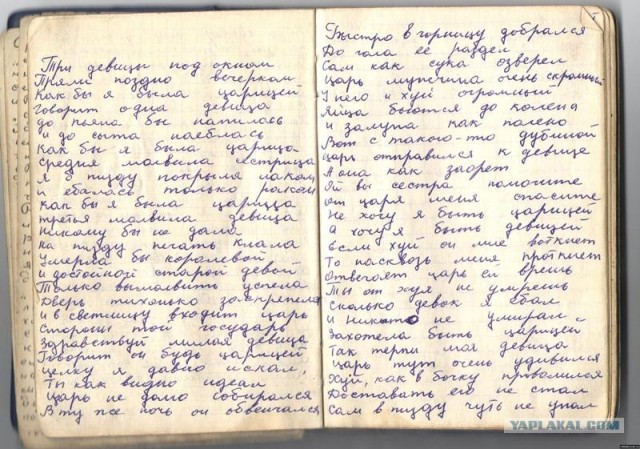 Три девицы под окном
Пряли поздно вечерком
Как бы я была царицей
Говорит одна девица
до пьяна бы напилась
и до сыта наеблась
Как бы я была царица
Средня молвила сестрица
я б пизду покрыла лаком
и ебалась только раком
Как бы я была царицца
третья молвила девица
никому бы не дала
на пизду печать клала
умерла бы королевой
и достойной старой девой
Только вымолвить успела
Дверь тихонько заскрепела
и в светлицу входит царь
Стороны той государь
Здравствуй милая девица
Говорит он будь царицей
целку я давно искал,
Ты как видно идеал
Царь не долго собирался
В ту же ночь он обвенчался
Быстро в горницу добрался
До гола её раздел
Сам как сука озверел
Царь мужчина очень скромный
У него и хуй огромный
Яйца бьются до колена
и залупа как полено
Вот с такою-то дубиной
царь отправился к девице
А она как заорет
Ой вы сестра помогите
от царя меня спасите
Не хочу я быть царицей
А хочу я быть девицей
Если хуй он мне воткнет
То насквозь меня проткнет
Отвечает царь ей врешь
Ты от хуя не умрешь
Сколько девок я ебал
и никто не умирал -
Захотела быть царицей
Так терпи моя девица
Царь тут очень удивился
Хуй, как в бочку провалился
Доставать его не стал
Сам в пизду чуть не упал
YAPLAKAL.COM